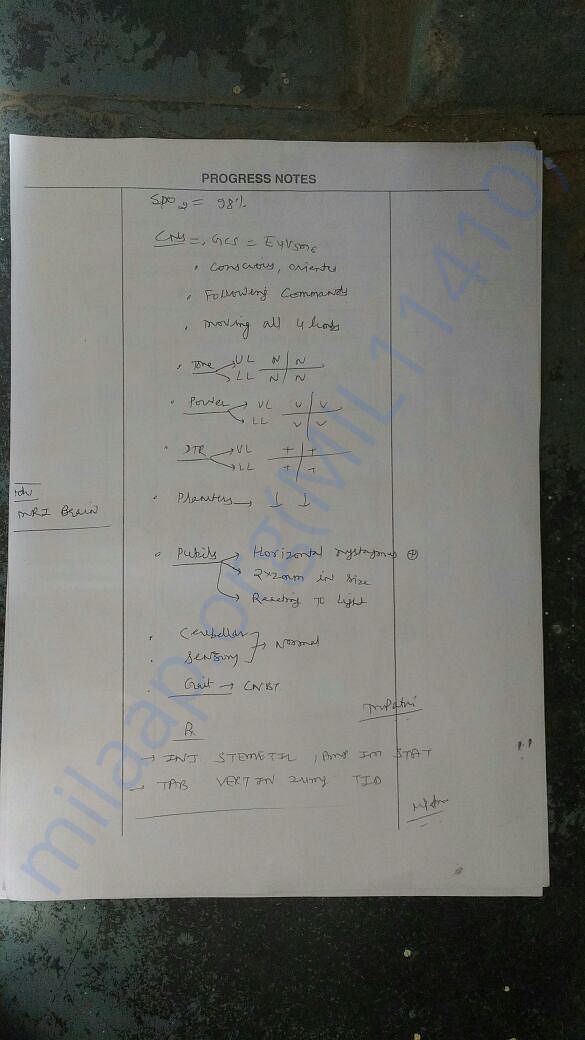 PROGRESS NOTES
SPO2 = 98%
CNS =, GCS = E4V5M6
• Conscious, oriented
• Following Commands
• moving all 4 limbs
• Tone UL N N
LL N N
• Power UL V V
LL V V
• DTR UL + +
LL + +
• Planters → ↓ ↓
Adv
MRI Brain
• Pupils → Horizontal nystagmus ⊕
→ 2x2mm in size
→ Reacting to light
• Cerebellar
• Sensory → Normal
• Gait → CNBT
Rx
→ INJ STEMETIL 1 Amp IM STAT
→ TAB VERTIN 24mg TID
milaap.org(MIL114410)